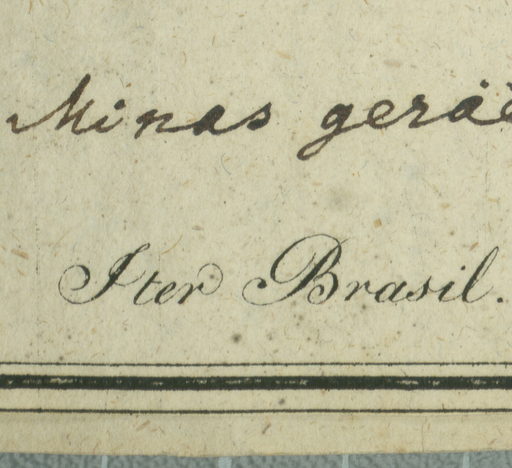 Minas geräe
Iter Brasil.